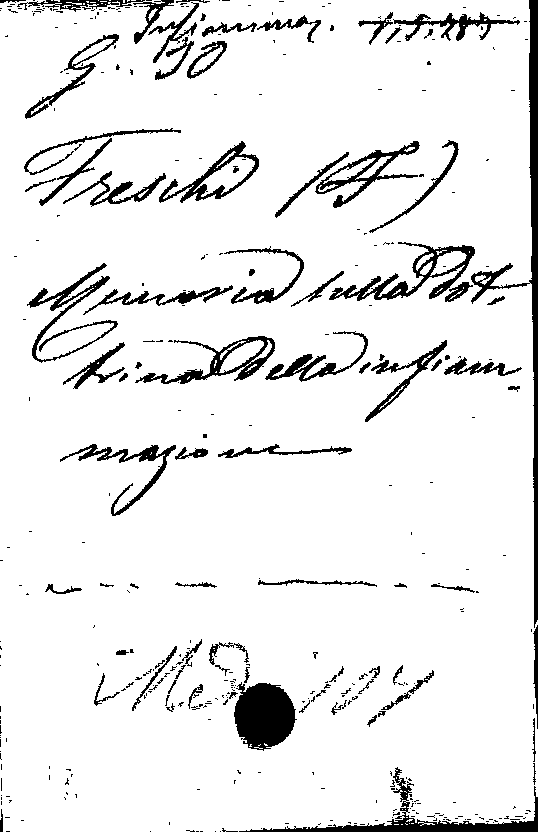 Infiammaz.
G. 30
Freschi (F)
Memoria sulla dot-
trina della infiam-
mazione
Med 104